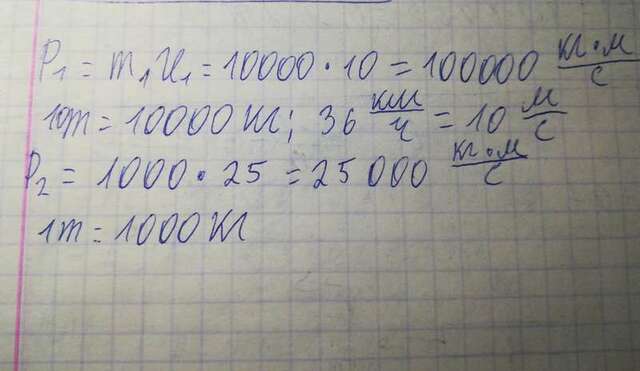 P₁ = m₁ v₁ = 10000 · 10 = 100000 кг·м/с
10т = 10000 кг; 36 км/ч = 10 м/с
P₂ = 1000 · 25 = 25 000 кг·м/с
1т = 1000 кг